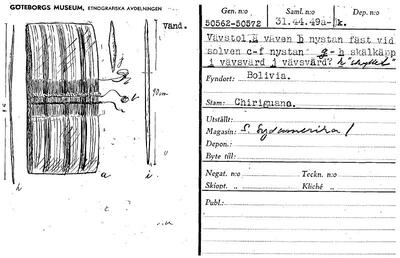 GÖTEBORGS MUSEUM, ETNOGRAFISKA AVDELNINGEN
Vänd.
90 cm
a
b
i
j
Gen. n:o
50562-50572
Saml. n:o
31.44.49a-k.
Dep. n:o
Vävstol a väven b nystan fäst vid
solven c-f nystan g-h skälkäpp
i vävsvärd j vävsvärd? k "skyttel"
Fyndort: Bolivia.
Stam: Chiriguano.
Utställt:
Magasin: S. Sydamerika /
Depon.:
Byte till:
Negat. n:o Teckn. n:o
Skiopt. „ Kliché „
Publ.: